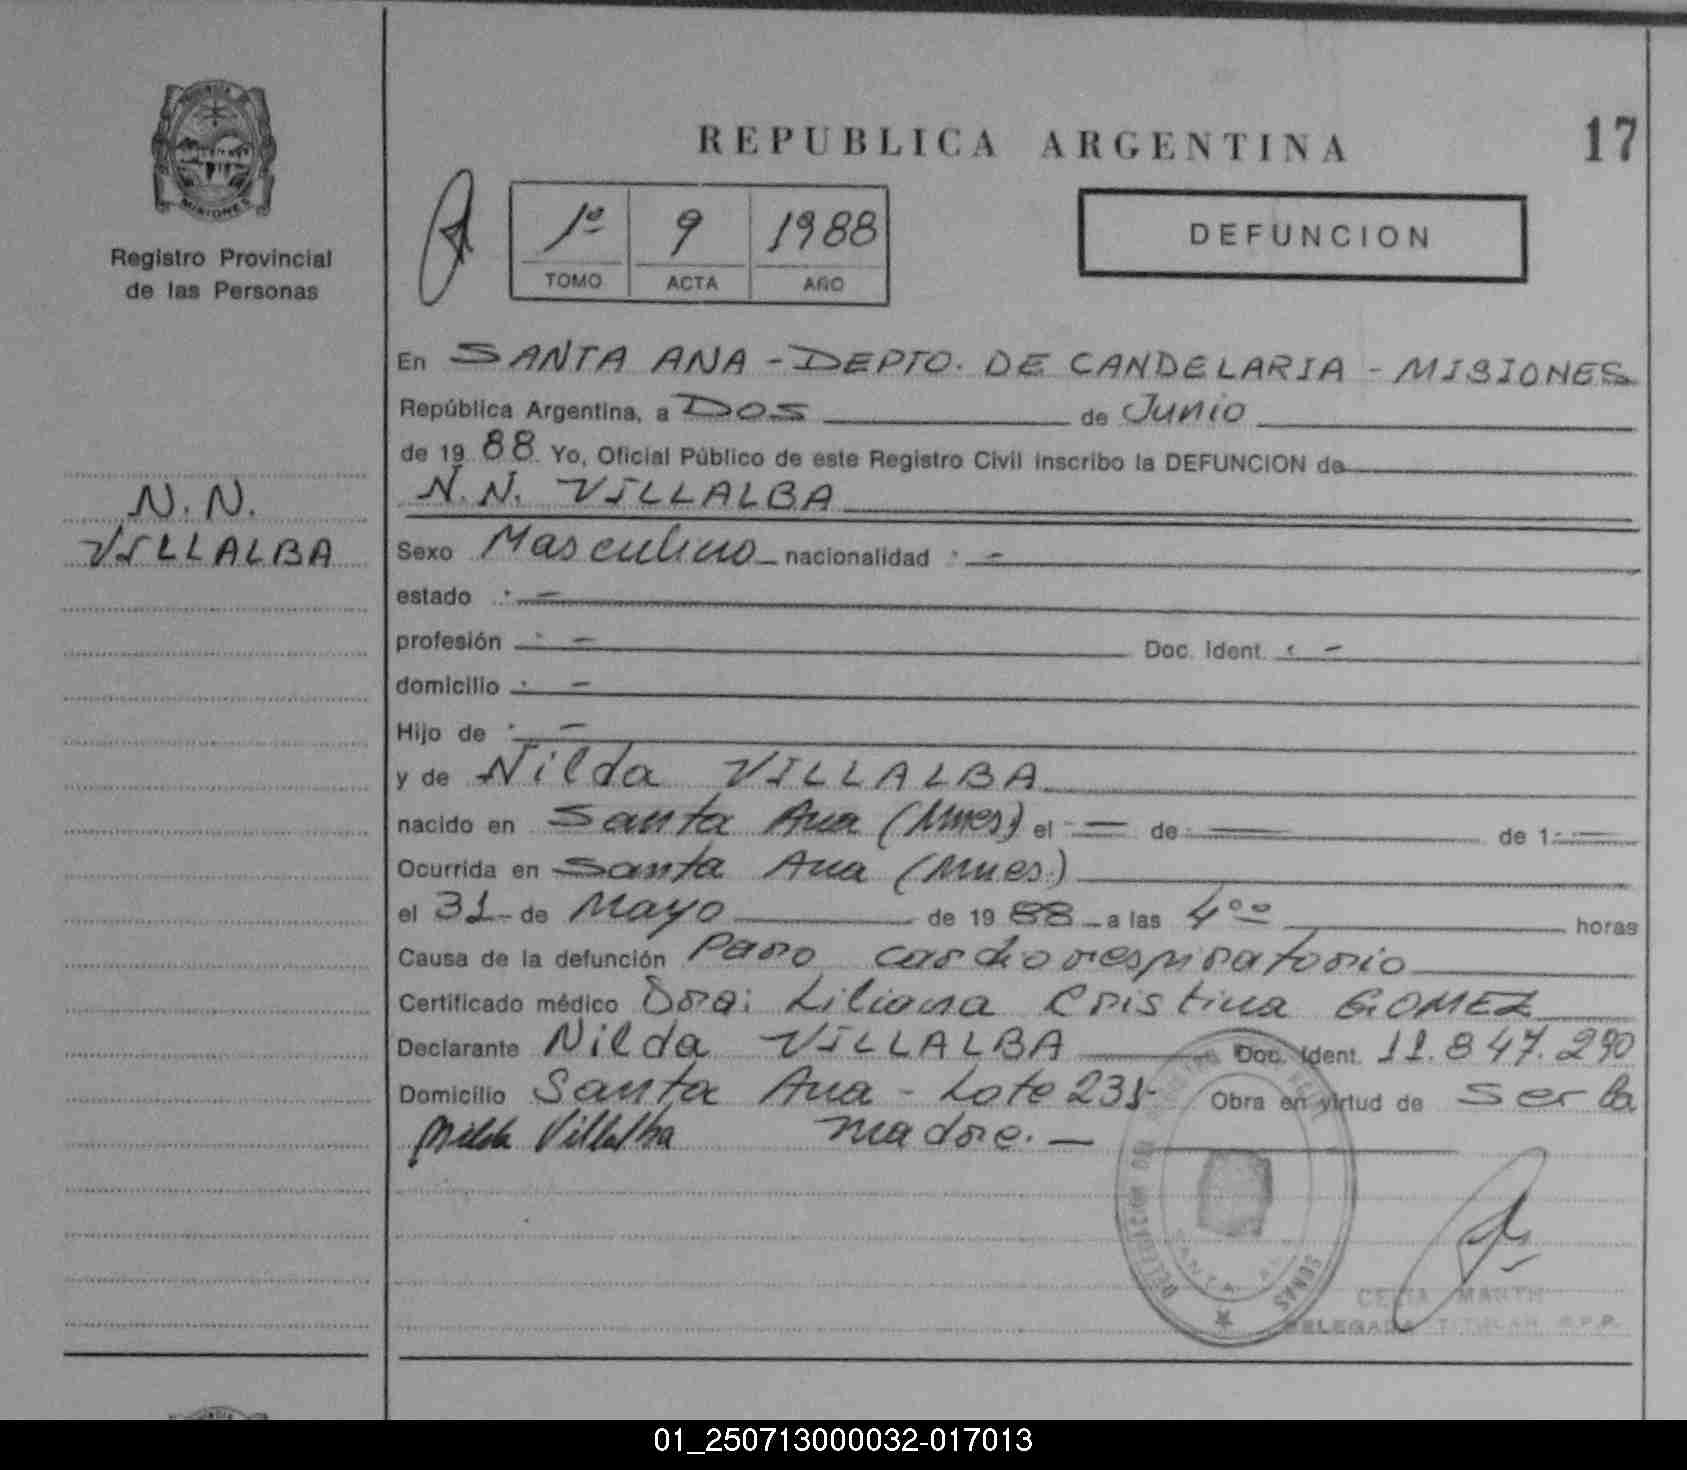 PROVINCIA DE
MISIONES
Registro Provincial
de las Personas
N. N.
VILLALBA
REPUBLICA ARGENTINA
17
1º 9 1988
TOMO ACTA AÑO
DEFUNCION
En SANTA ANA - DEPTO. DE CANDELARIA - MISIONES
República Argentina, a DOS de Junio
de 19 88 Yo, Oficial Público de este Registro Civil inscribo la DEFUNCION de
N. N. VILLALBA
Sexo Masculino nacionalidad -
estado -
profesión - Doc. Ident. -
domicilio -
Hijo de -
y de Nilda VILLALBA
nacido en Santa Ana (Mnes) el - de - de 1 -
Ocurrida en Santa Ana (Mnes.)
el 31 de Mayo de 19 88 a las 4⁰⁰ horas
Causa de la defunción Paro cardiorespiratorio
Certificado médico Dra: Liliana Cristina GOMEZ
Declarante Nilda VILLALBA Doc. Ident. 11.847.290
Domicilio Santa Ana - Lote 231 Obra en virtud de Ser la
Nilda Villalba madre. -
DELEGACION DEL
SANTA ANA
CELIA
DELEGADA TITULAR R.P.P.
01_250713000032-017013